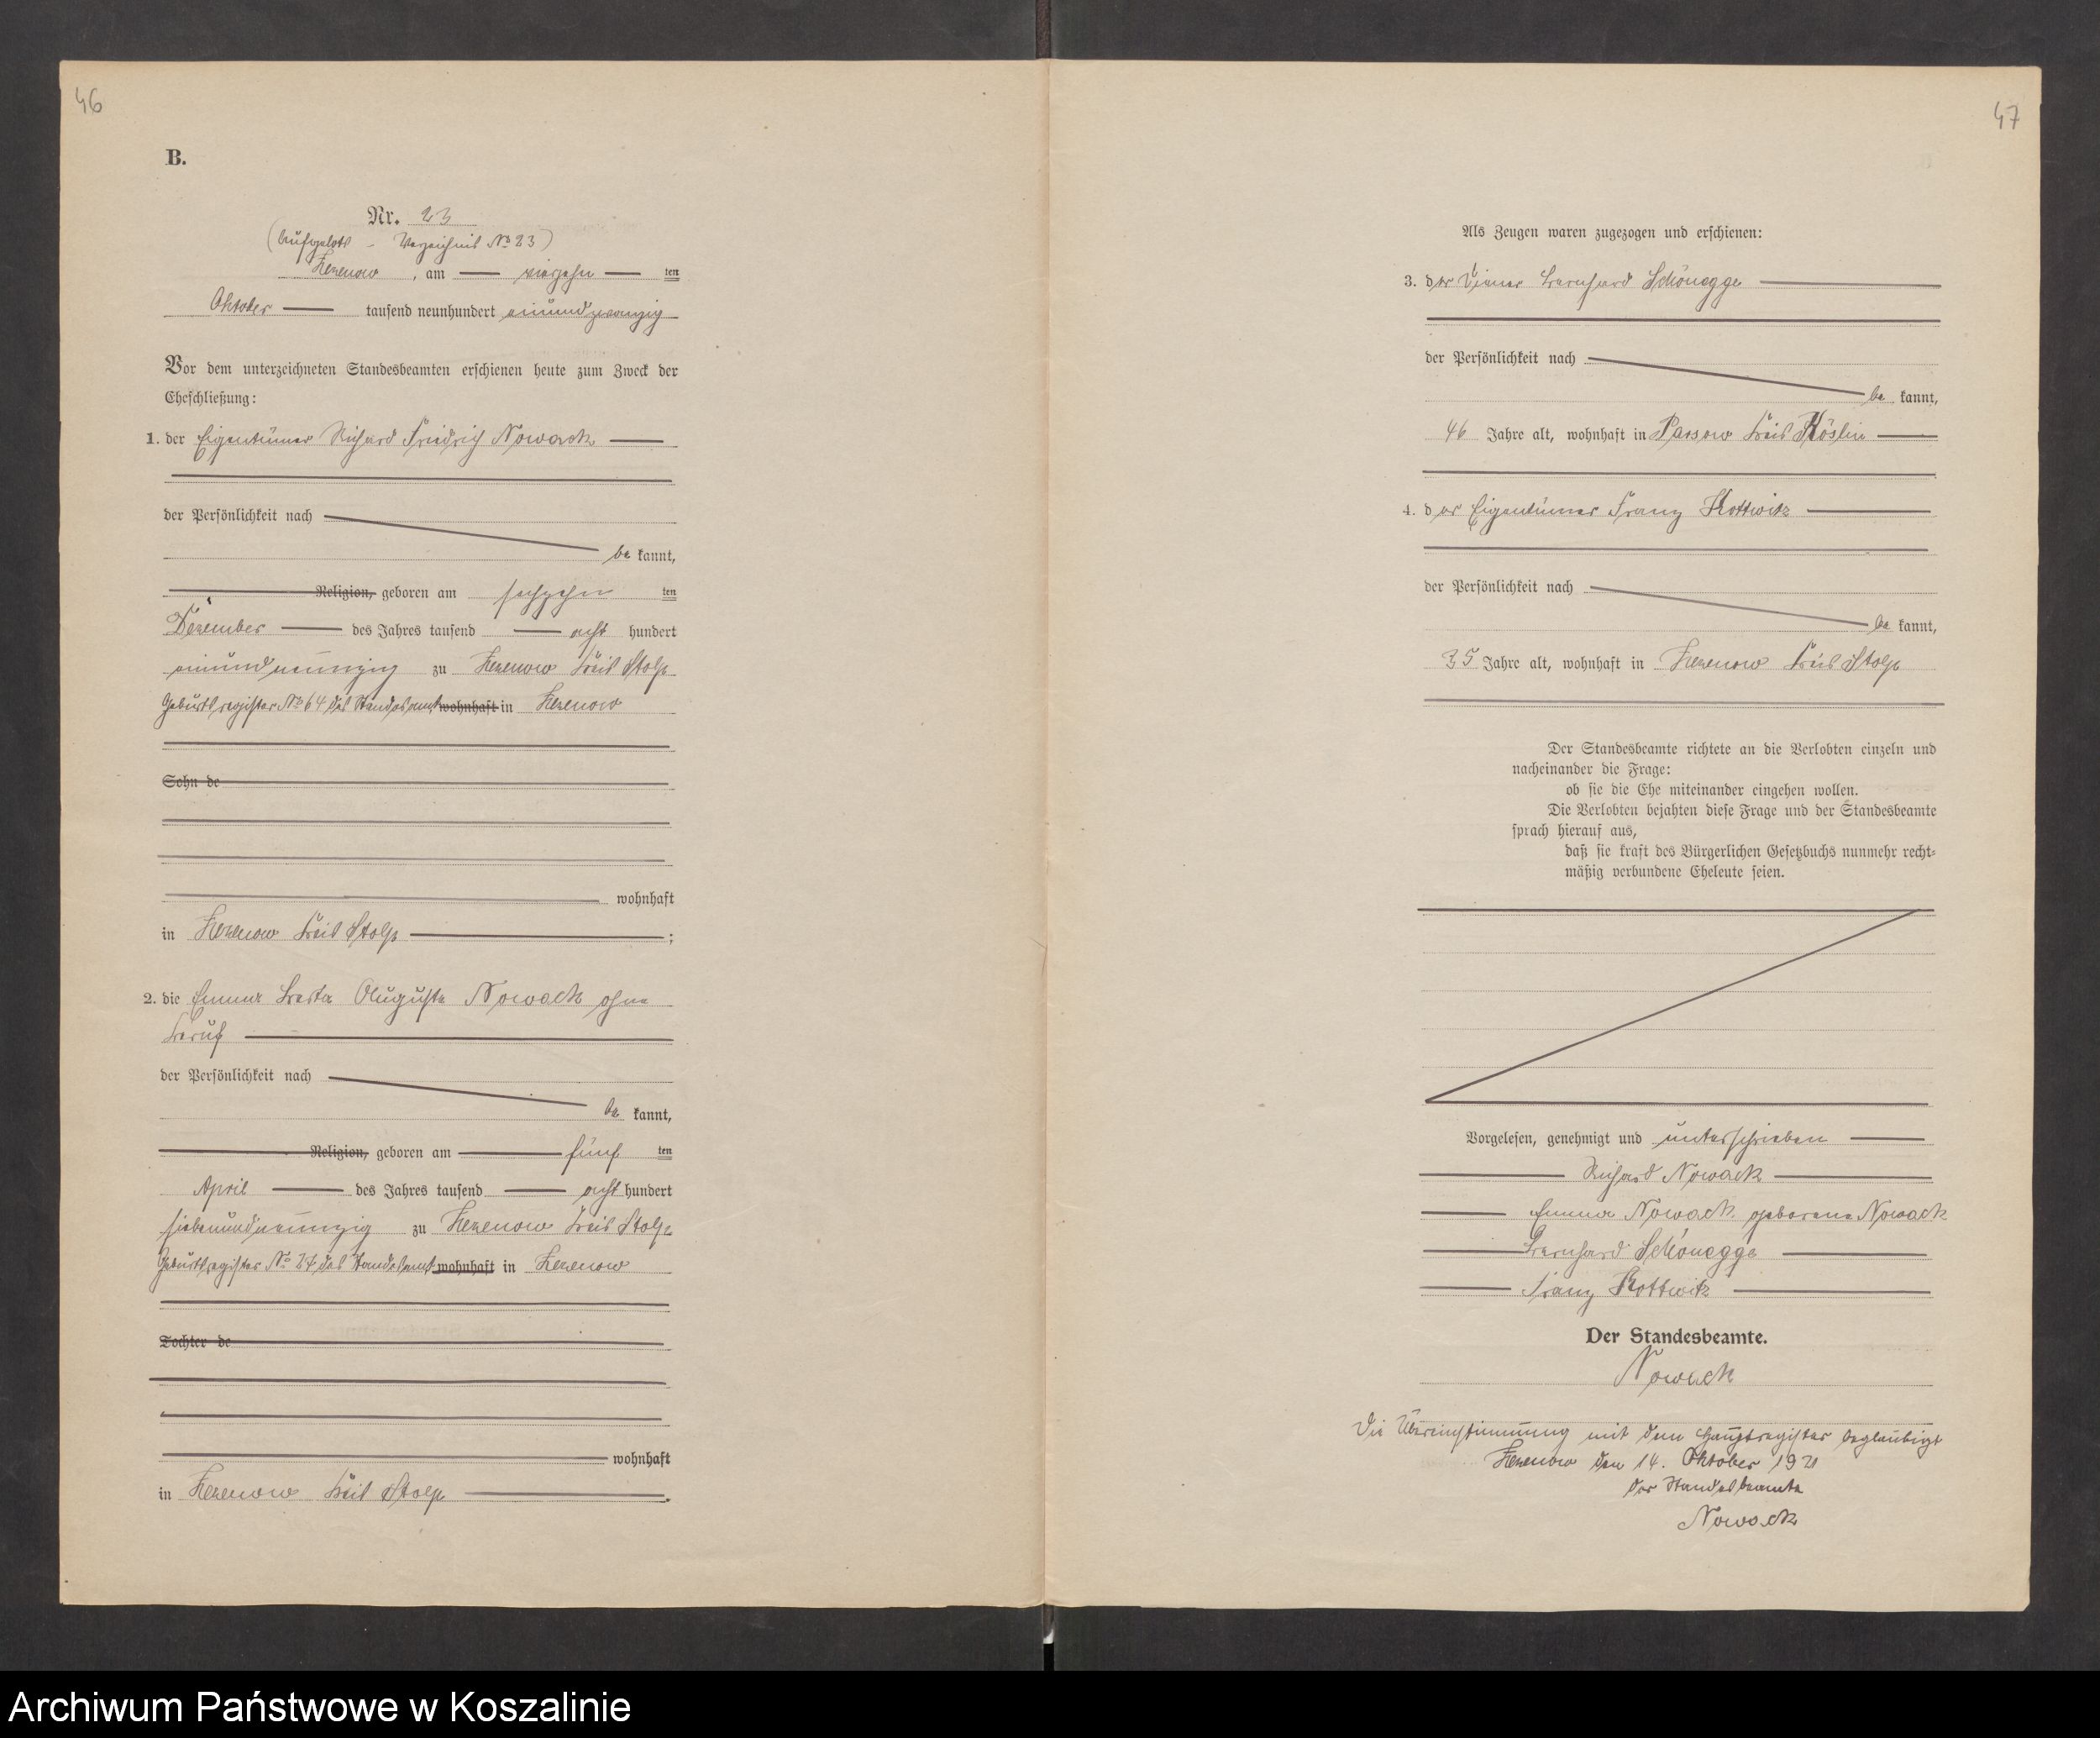 46
B.
Nr. 23
(Aufgebots - Verzeichnis No 23)
Zezenow, am vierzehn ten
Oktober tausend neunhundert einundzwanzig
Vor dem unterzeichneten Standesbeamten erschienen heute zum Zweck der
Eheschließung:
1. der Eigentümer Richard Friedrich Nowack
der Persönlichkeit nach
be kannt,
Religion, geboren am sechzehn ten
Dezember des Jahres tausend acht hundert
einundneunzig zu Zezenow Kreis Stolp
Geburtsregister No 64 des Standesamt wohnhaft in Zezenow
Sohn de
wohnhaft
in Zezenow Kreis Stolp ;
2. die Emma Berta Auguste Nowack ohne
Beruf
der Persönlichkeit nach
be kannt,
Religion, geboren am fünf ten
April des Jahres tausend acht hundert
siebenundneunzig zu Zezenow Kreis Stolp
Geburtsregister No 24 des Standesamt wohnhaft in Zezenow
Tochter de
wohnhaft
in Zezenow Kreis Stolp .
47
Als Zeugen waren zugezogen und erschienen:
3. der Diener Bernhard Schönegge
der Persönlichkeit nach
be kannt,
46 Jahre alt, wohnhaft in Parsow Kreis Köslin
4. der Eigentümer Franz Kottwitz
der Persönlichkeit nach
be kannt,
35 Jahre alt, wohnhaft in Zezenow Kreis Stolp
Der Standesbeamte richtete an die Verlobten einzeln und
nacheinander die Frage:
ob sie die Ehe miteinander eingehen wollen.
Die Verlobten bejahten diese Frage und der Standesbeamte
sprach hierauf aus,
daß sie kraft des Bürgerlichen Gesetzbuchs nunmehr recht-
mäßig verbundene Eheleute seien.
Vorgelesen, genehmigt und unterschrieben
Richard Nowack
Emma Nowack geborene Nowack
Bernhard Schönegge
Franz Kottwitz
Der Standesbeamte.
Nowack
Die Übereinstimmung mit dem Hauptregister beglaubigt
Zezenow den 14. Oktober 1921
Der Standesbeamte
Nowack
Archiwum Państwowe w Koszalinie